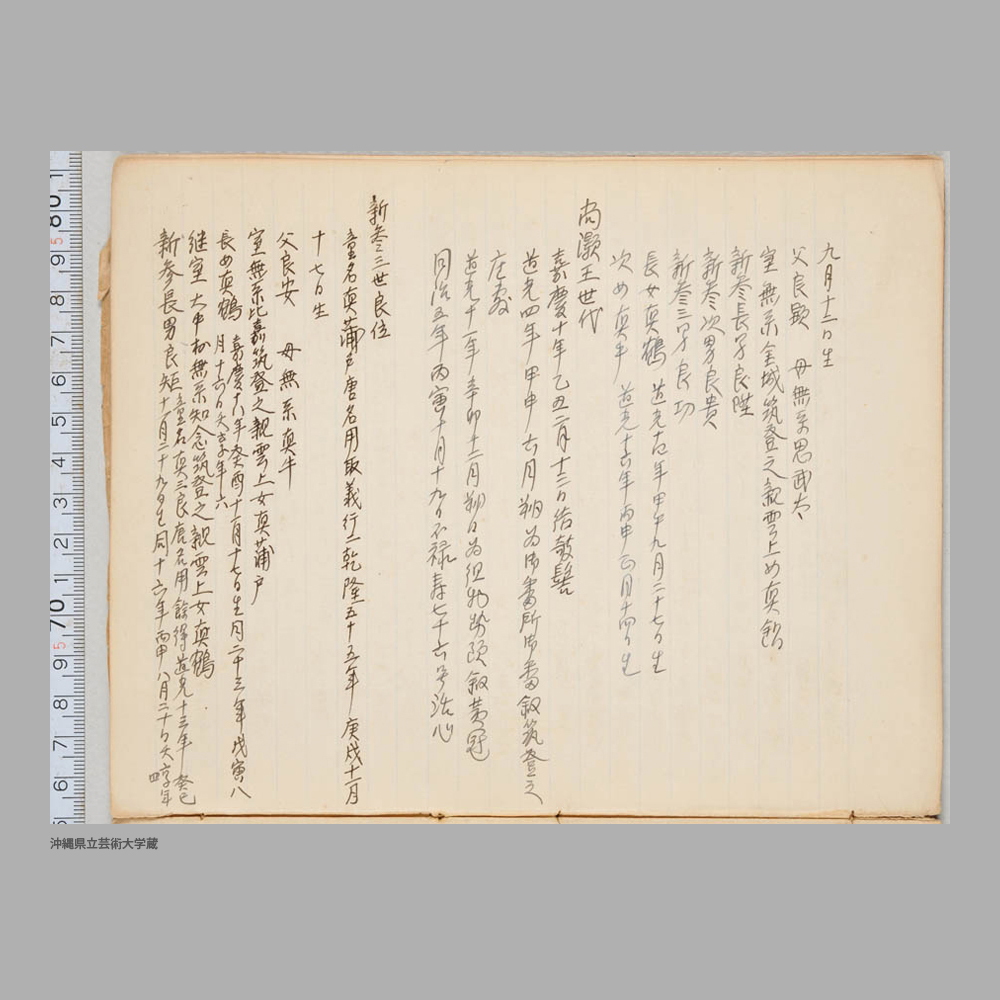 九月十二日生
父良顕 母無系思武太
室無系金城筑登之親雲上女真鍋
新参長子良陞
新参次男良貴
新参三子良功
長女真鶴 道光十四年甲午九月二十七日生
次女真牛 道光十六年丙申正月十四日生
尚灝王世代
嘉慶十年乙丑二月十三日結敧髻
道光四年甲申六月朔為御番所御番叙筑登之
座敷
道光十一年辛卯十二月朔日為組物勢頭叙黄冠
同治五年丙寅十月十九日不禄寿七十六号浩心
新参三世良位
童名真蒲戸唐名用取義行一乾隆五十五年庚戌十一月
十七日生
父良安 母無系真牛
室無系比嘉筑登之親雲上女真蒲戸
長女真鶴 嘉慶十八年癸酉十一月十七日生同二十三年戊寅八
月十六日夭享年六
継室大中村無系知念筑登之親雲上女真鶴
新参長男良矩 童名真三良唐名用餘得道光十三年癸巳
十一月二十九日生同十六年丙申八月二十日夭享年
四
80
9
8
7
6
5
4
3
2
1
70
9
8
7
6
沖縄県立芸術大学蔵